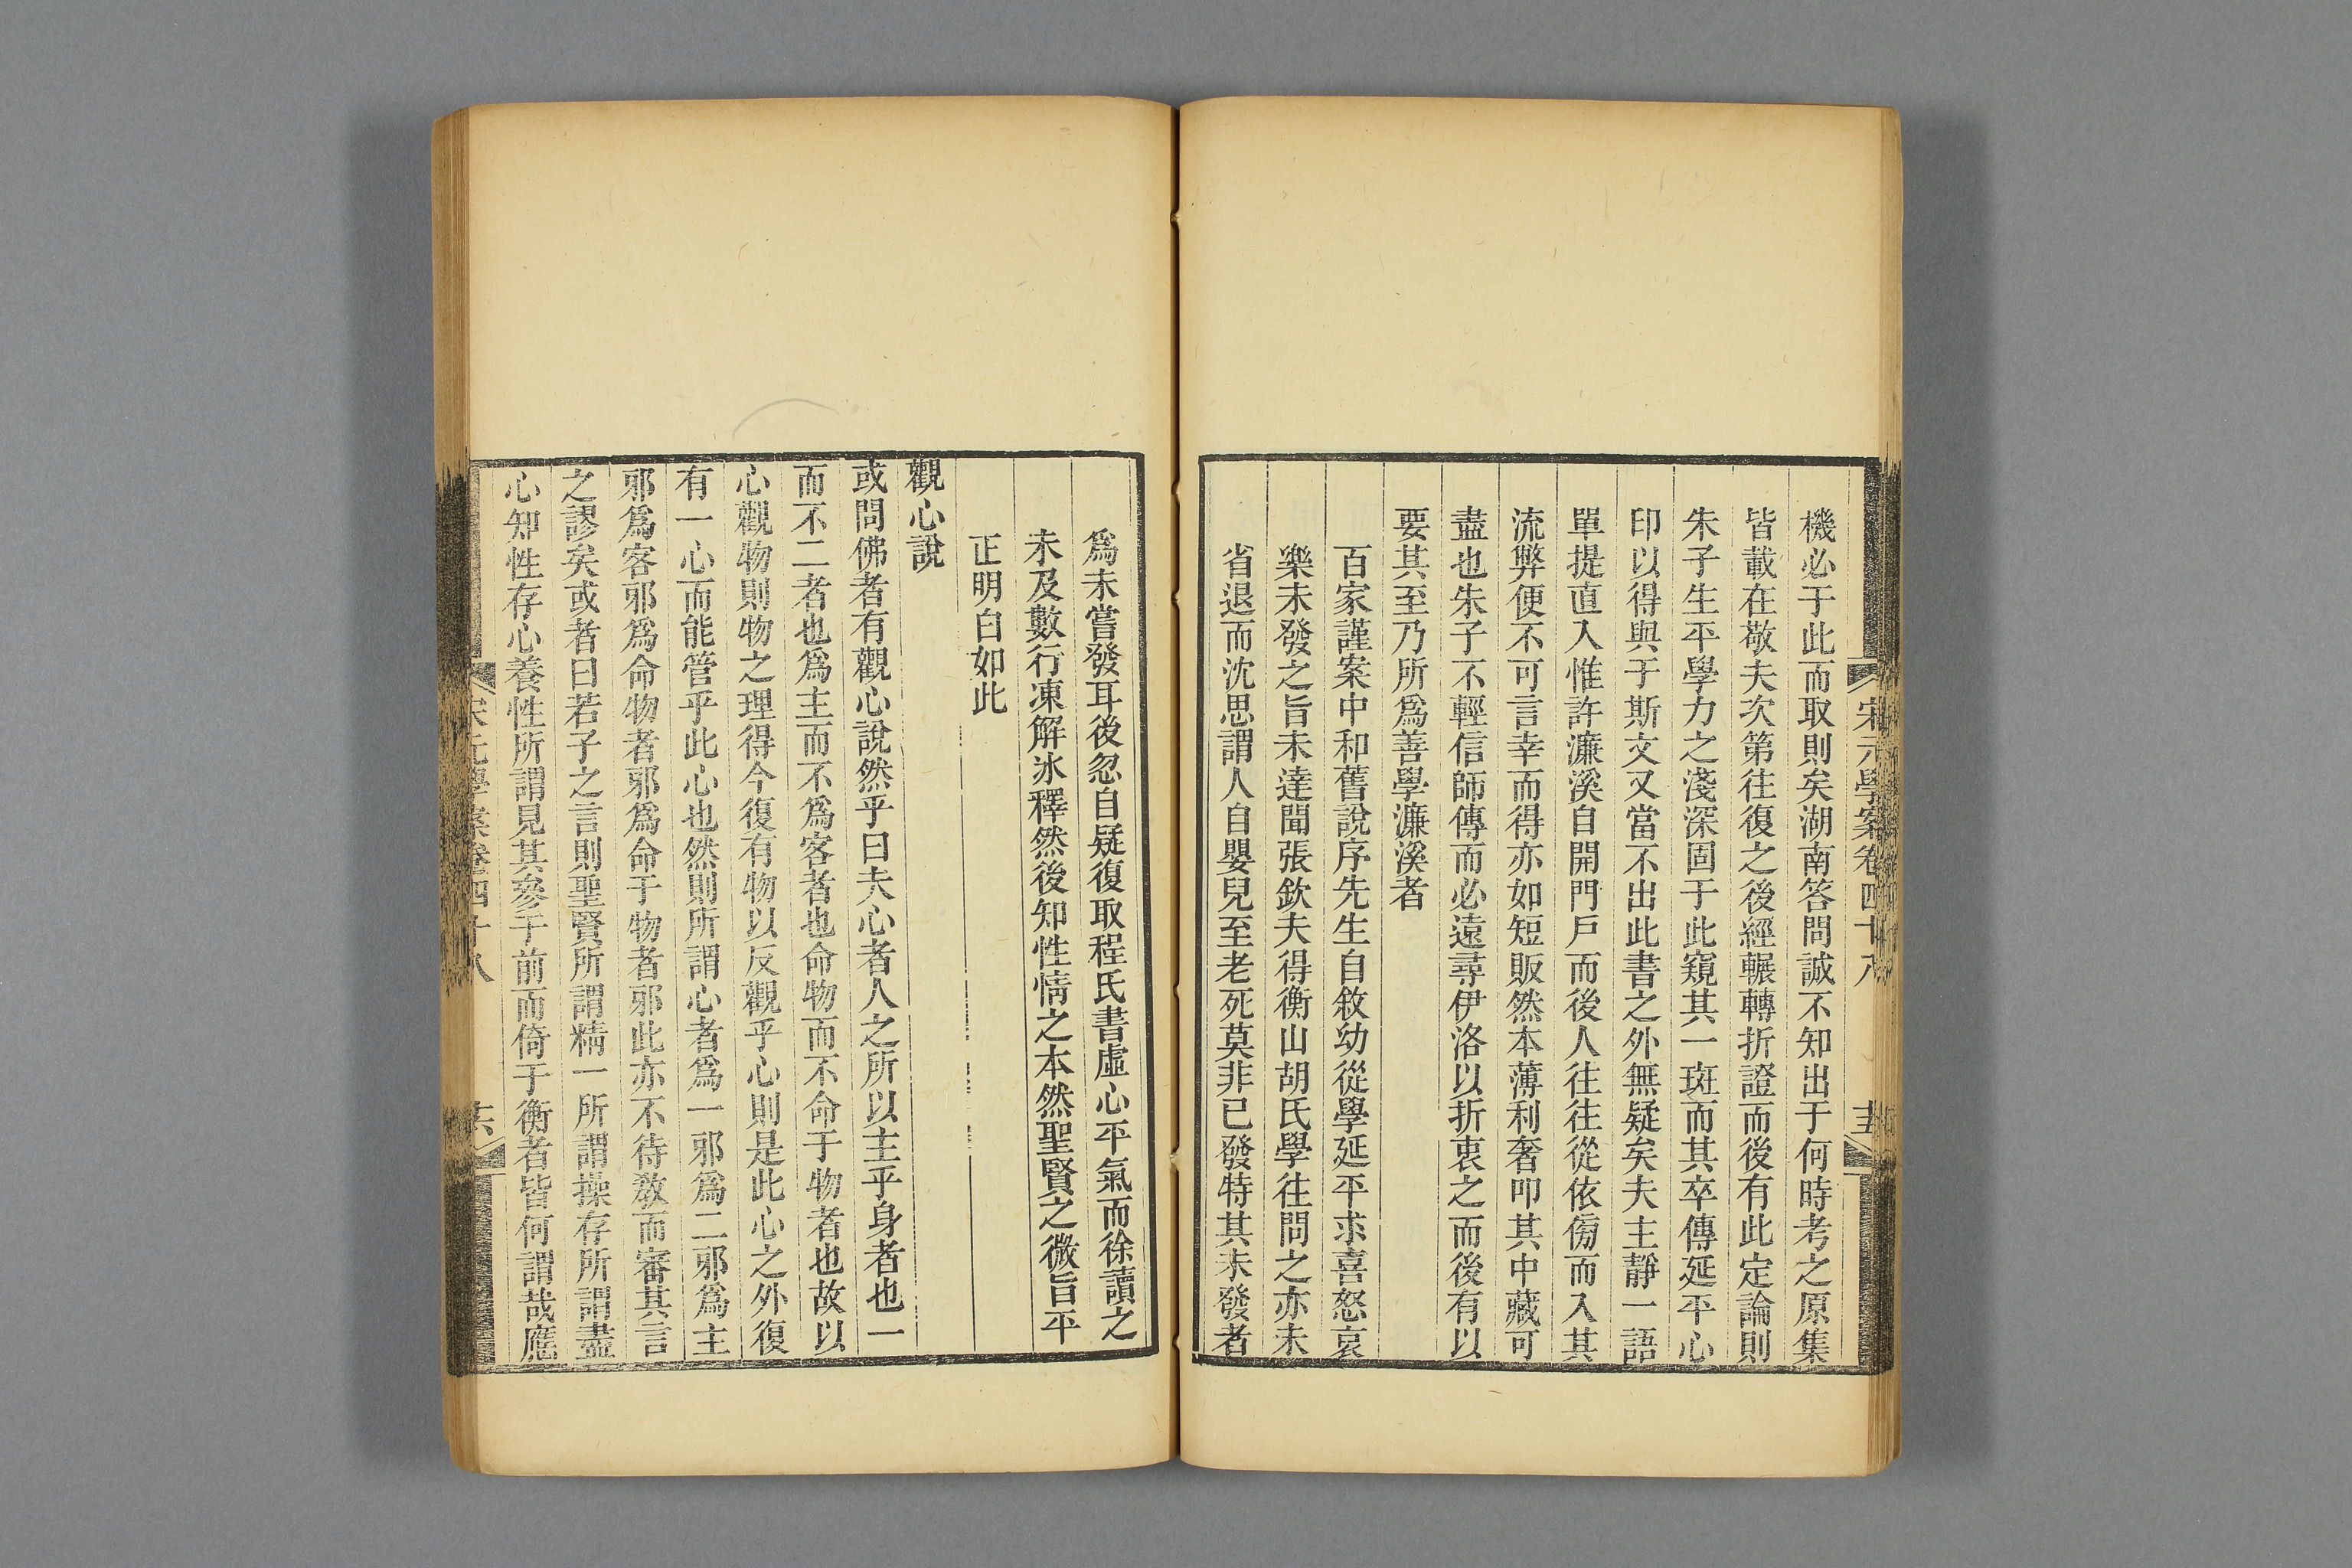 宋元學案卷四十八
機必于此而取則矣湖南答問誠不知出于何時考之原集
皆載在敬夫次第往復之後經輾轉折證而後有此定論則
朱子生平學力之淺深固于此窺其一斑而其卒傳延平心
印以得與于斯文又當不出此書之外無疑矣夫主靜一語
單提直入惟許濂溪自開門戶而後人往往從依傍而入其
流弊便不可言幸而得亦如短販然本薄利奢叩其中藏可
盡也朱子不輕信師傳而必遠尋伊洛以折衷之而後有以
要其至乃所爲善學濂溪者
百家謹案中和舊說序先生自敘幼從學延平求喜怒哀
樂未發之旨未達聞張欽夫得衡山胡氏學往問之亦未
省退而沈思謂人自嬰兒至老死莫非已發特其未發者
爲未嘗發耳後忽自疑復取程氏書虛心平氣而徐讀之
未及數行凍解冰釋然後知性情之本然聖賢之微旨平
正明白如此
觀心說
或問佛者有觀心說然乎曰夫心者人之所以主乎身者也一
而不二者也爲主而不爲客者也命物而不命于物者也故以
心觀物則物之理得今復有物以反觀乎心則是此心之外復
有一心而能管乎此心也然則所謂心者爲一邪爲二邪爲主
邪爲客邪爲命物者邪爲命于物者邪此亦不待教而審其言
之謬矣或者曰若子之言則聖賢所謂精一所謂操存所謂盡
心知性存心養性所謂見其參于前而倚于衡者皆何謂哉應
宋元學案卷四十八